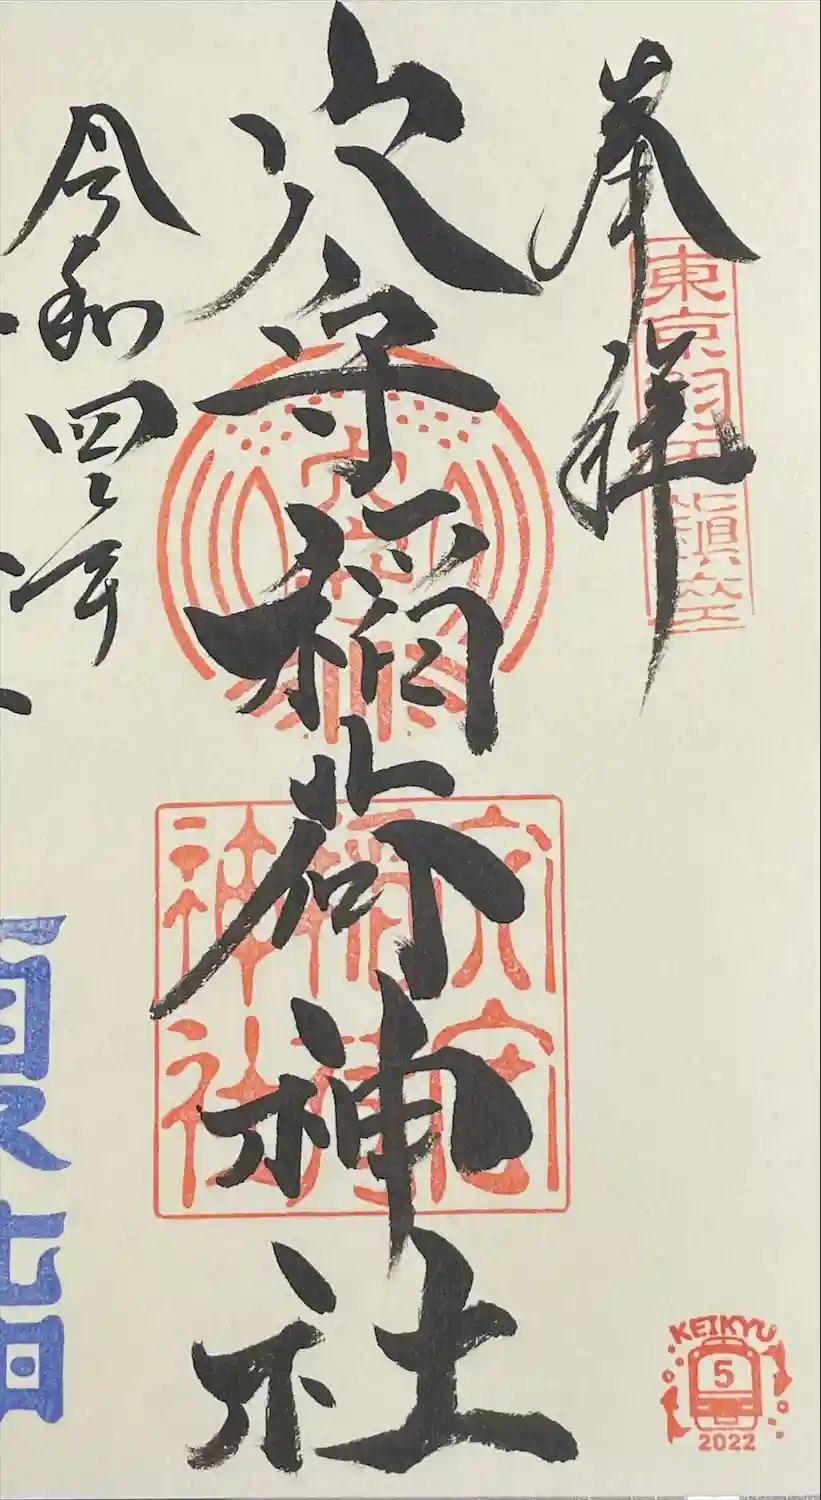 奉拝
東京羽田鎮座
穴守稲荷神社
穴守
稲荷
神社
令和四年
KEIKYU
5
2022